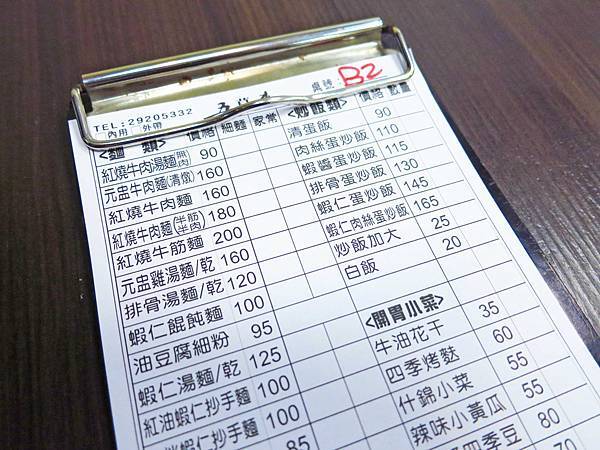 桌號: B2
TEL:29205332
內用 外帶
<麵 類> 價格 細麵 家常
紅燒牛肉湯麵(無肉) 90
元盅牛肉麵(清燉) 160
紅燒牛肉麵 160
紅燒牛肉麵(半筋半肉) 180
紅燒牛筋麵 200
元盅雞湯麵/乾 160
排骨湯麵/乾 120
蝦仁餛飩麵 100
油豆腐細粉 95
蝦仁湯麵/乾 125
紅油蝦仁抄手麵 100
蝦仁抄手麵 100
85
<炒飯類> 價格 數量
清蛋飯 90
肉絲蛋炒飯 110
蝦醬蛋炒飯 115
排骨蛋炒飯 130
蝦仁蛋炒飯 145
蝦仁肉絲蛋炒飯 165
炒飯加大 25
白飯 20
<開胃小菜>
牛油花干 35
四季烤麩 60
什錦小菜 55
辣味小黃瓜 55
四季豆 70
80